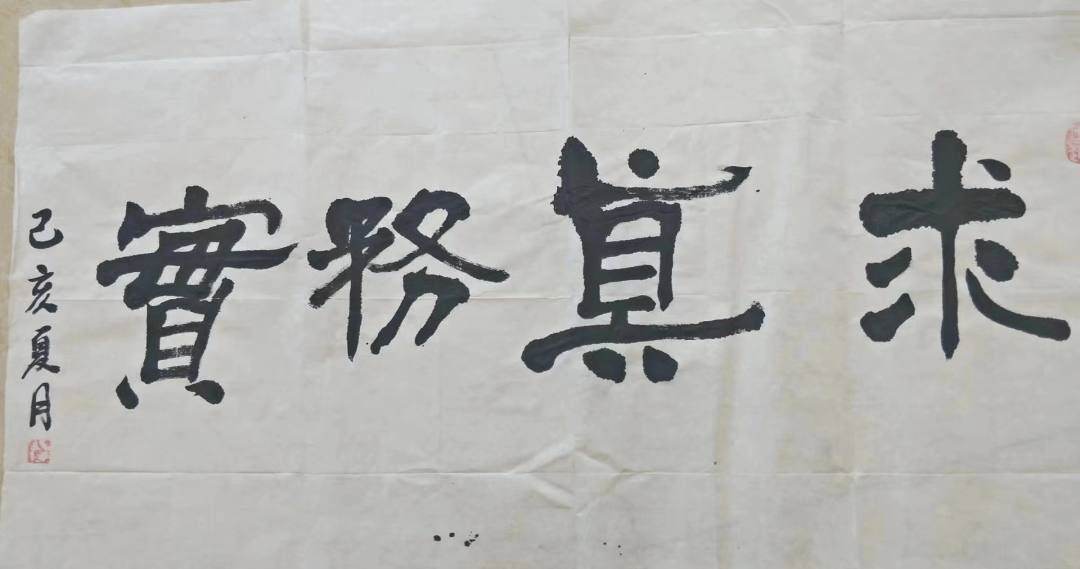 求真務實
己亥夏月